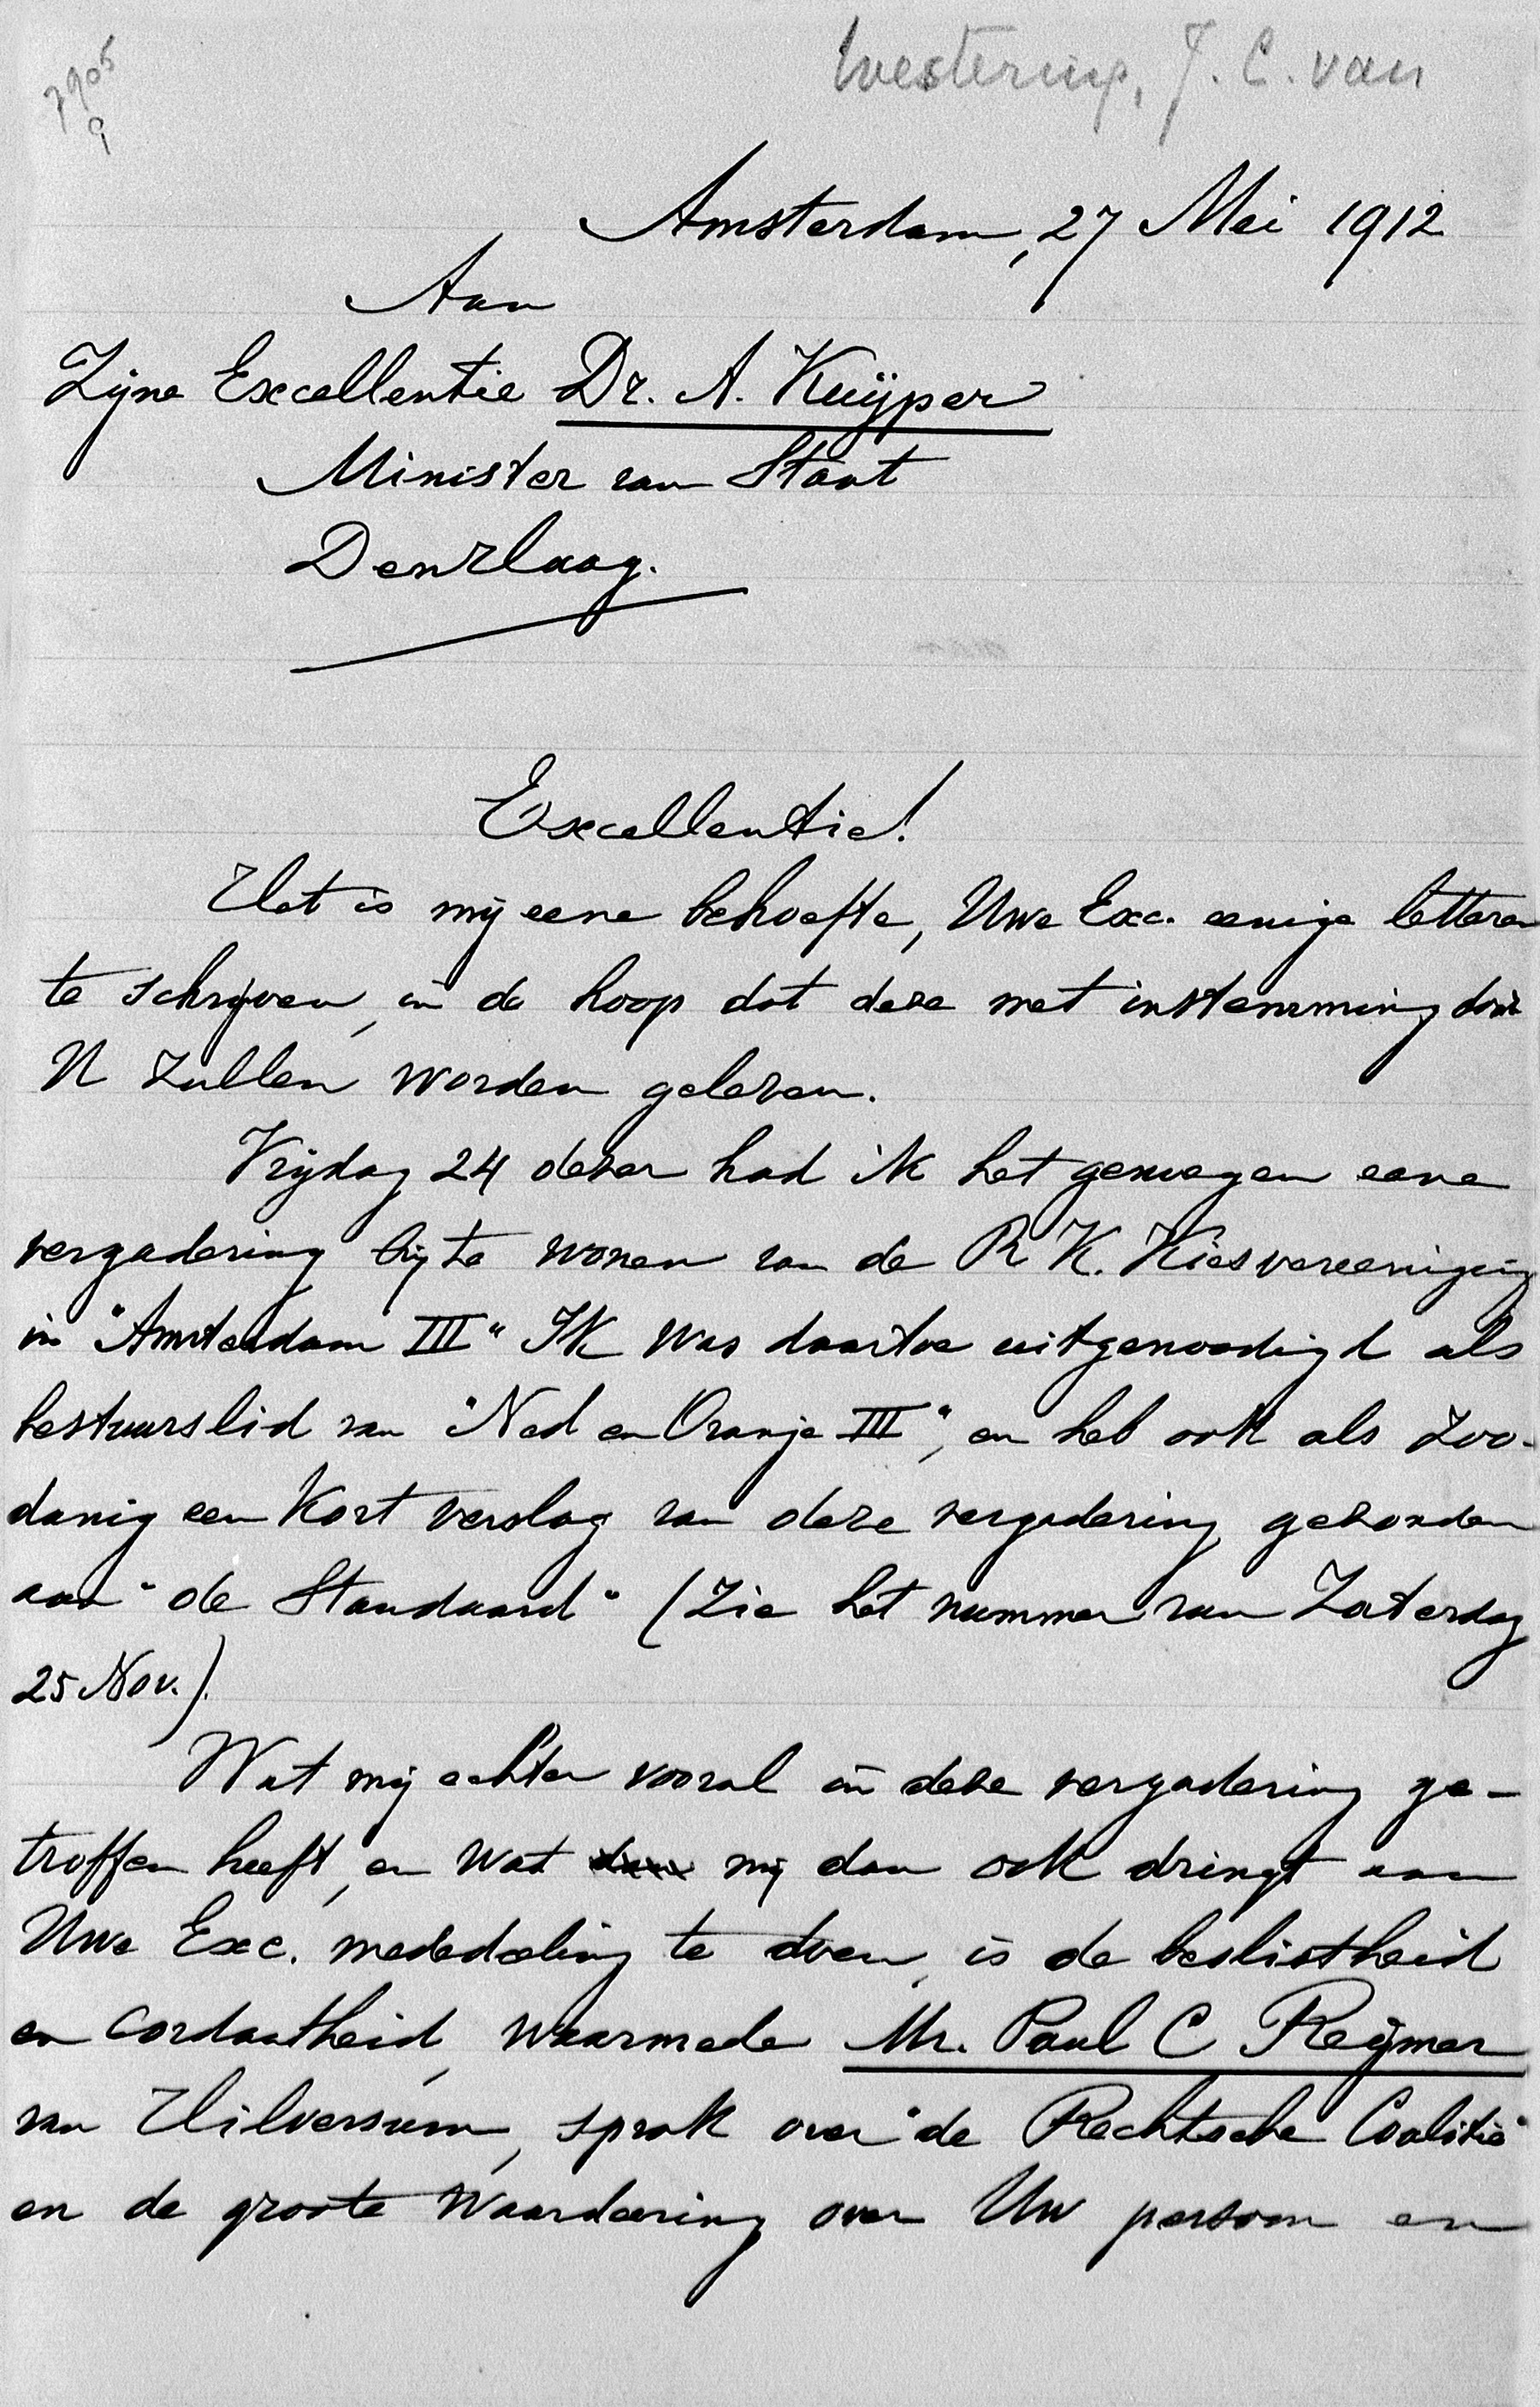 Westering, J. C. van
7905
9
Amsterdam, 27 Mei 1912
Aan
Zijne Excellentie Dr. A. Kuijper
Minister van Staat
Den Haag.
Excellentie!
Het is mij eene behoefte, Uwe Exc. eenige letteren
te schrijven, in de hoop dat deze met instemming door
U zullen worden gelezen.
Vrijdag 24 dezer had ik het genoegen eene
vergadering bij te wonen van de R K. Kiesvereeniging
in "Amsterdam III" Ik was daartoe uitgenoodigd als
bestuurslid van "Ned en Oranje III", en heb ook als zoo-
danig een kort verslag van deze vergadering gezonden
aan "de Standaard" (Zie het nummer van Zaterdag
25 Nov.).
Wat mij echter vooral in deze vergadering ge-
troffen heeft, en wat mij dan ook dringt aan
Uwe Exc. mededeeling te doen, is de beslistheid
en cordaatheid, waarmede Mr. Paul C Reijmer
van Hilversum, sprak over "de Rechtsche Coalitie"
en de groote waardeering over Uw persoon en